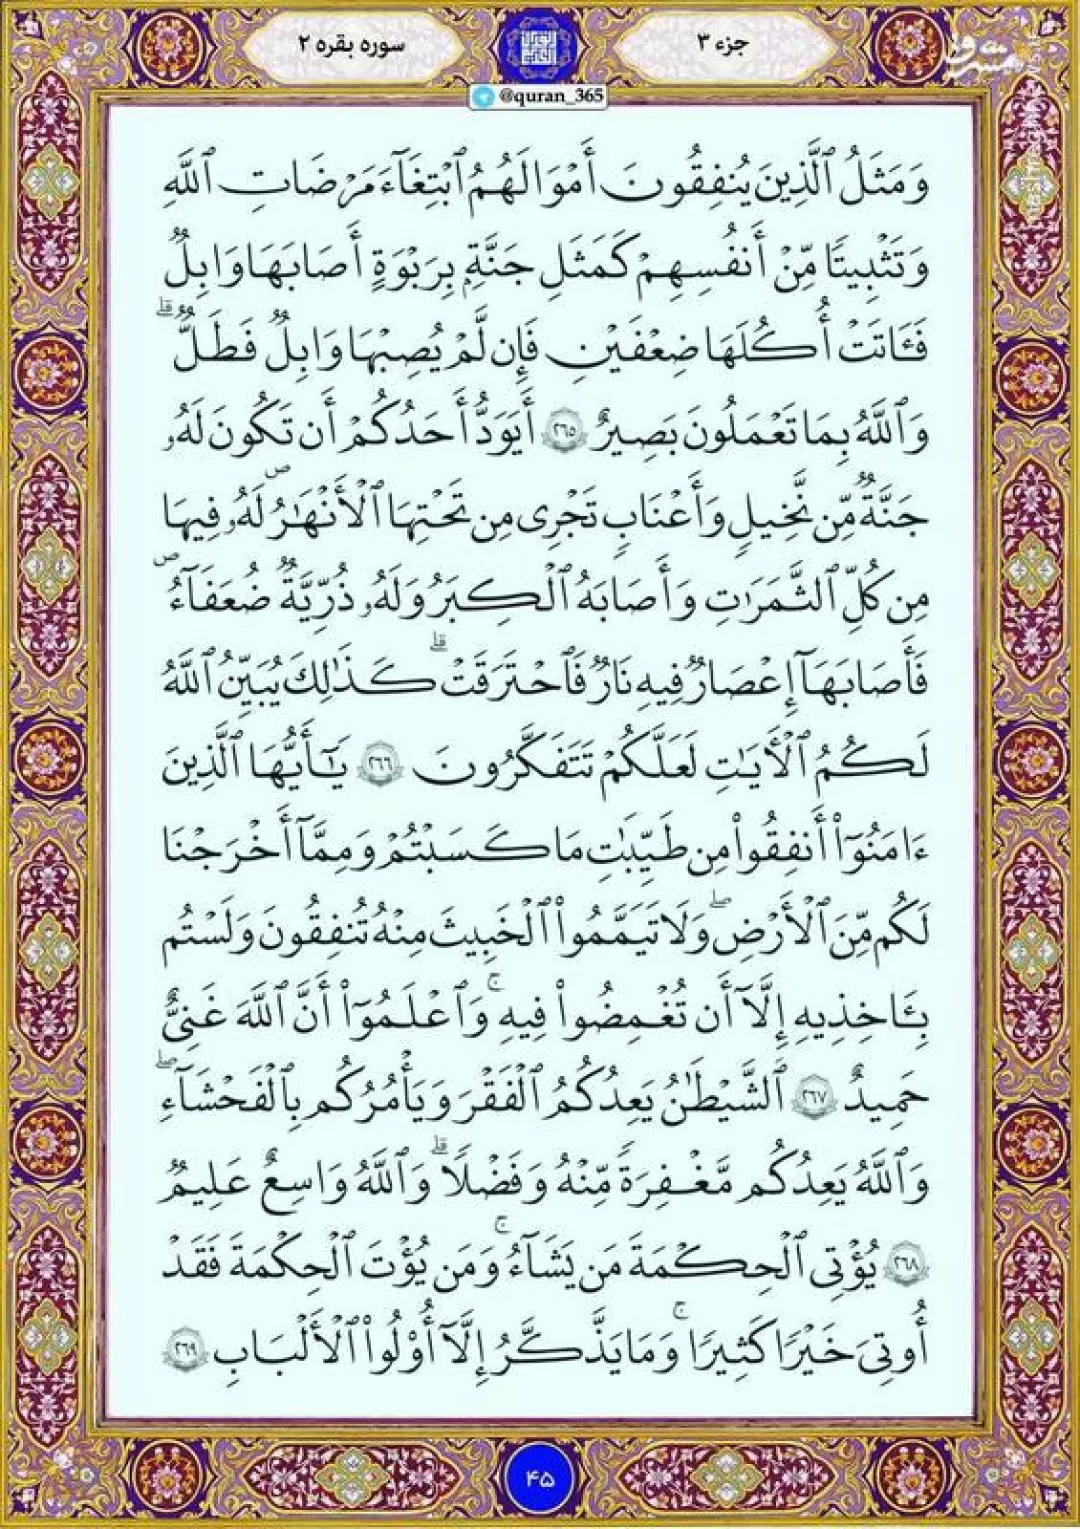 جزء ۳
سوره بقره ۲
@quran_365
وَمَثَلُ ٱلَّذِينَ يُنفِقُونَ أَمْوَٰلَهُمُ ٱبْتِغَآءَ مَرْضَاتِ ٱللَّهِ
وَتَثْبِيتًا مِّنْ أَنفُسِهِمْ كَمَثَلِ جَنَّةٍۭ بِرَبْوَةٍ أَصَابَهَا وَابِلٌ
فَـَٔاتَتْ أُكُلَهَا ضِعْفَيْنِ فَإِن لَّمْ يُصِبْهَا وَابِلٌ فَطَلٌّ ۗ
وَٱللَّهُ بِمَا تَعْمَلُونَ بَصِيرٌ ٢٦٥ أَيَوَدُّ أَحَدُكُمْ أَن تَكُونَ لَهُۥ
جَنَّةٌ مِّن نَّخِيلٍ وَأَعْنَابٍ تَجْرِى مِن تَحْتِهَا ٱلْأَنْهَٰرُ لَهُۥ فِيهَا
مِن كُلِّ ٱلثَّمَرَٰتِ وَأَصَابَهُ ٱلْكِبَرُ وَلَهُۥ ذُرِّيَّةٌ ضُعَفَآءُ
فَأَصَابَهَآ إِعْصَارٌ فِيهِ نَارٌ فَٱحْتَرَقَتْ ۗ كَذَٰلِكَ يُبَيِّنُ ٱللَّهُ
لَكُمُ ٱلْأَيَٰتِ لَعَلَّكُمْ تَتَفَكَّرُونَ ٢٦٦ يَٰٓأَيُّهَا ٱلَّذِينَ
ءَامَنُوٓا۟ أَنفِقُوا۟ مِن طَيِّبَٰتِ مَا كَسَبْتُمْ وَمِمَّآ أَخْرَجْنَا
لَكُم مِّنَ ٱلْأَرْضِ ۖ وَلَا تَيَمَّمُوا۟ ٱلْخَبِيثَ مِنْهُ تُنفِقُونَ وَلَسْتُم
بِـَٔاخِذِيهِ إِلَّآ أَن تُغْمِضُوا۟ فِيهِ ۚ وَٱعْلَمُوٓا۟ أَنَّ ٱللَّهَ غَنِىٌّ
حَمِيدٌ ٢٦٧ ٱلشَّيْطَٰنُ يَعِدُكُمُ ٱلْفَقْرَ وَيَأْمُرُكُم بِٱلْفَحْشَآءِ ۖ
وَٱللَّهُ يَعِدُكُم مَّغْفِرَةً مِّنْهُ وَفَضْلًا ۗ وَٱللَّهُ وَاسِعٌ عَلِيمٌ
٢٦٨ يُؤْتِى ٱلْحِكْمَةَ مَن يَشَآءُ ۚ وَمَن يُؤْتَ ٱلْحِكْمَةَ فَقَدْ
أُوتِىَ خَيْرًا كَثِيرًا ۗ وَمَا يَذَّكَّرُ إِلَّآ أُو۟لُوا۟ ٱلْأَلْبَابِ ٢٦٩
۴۵